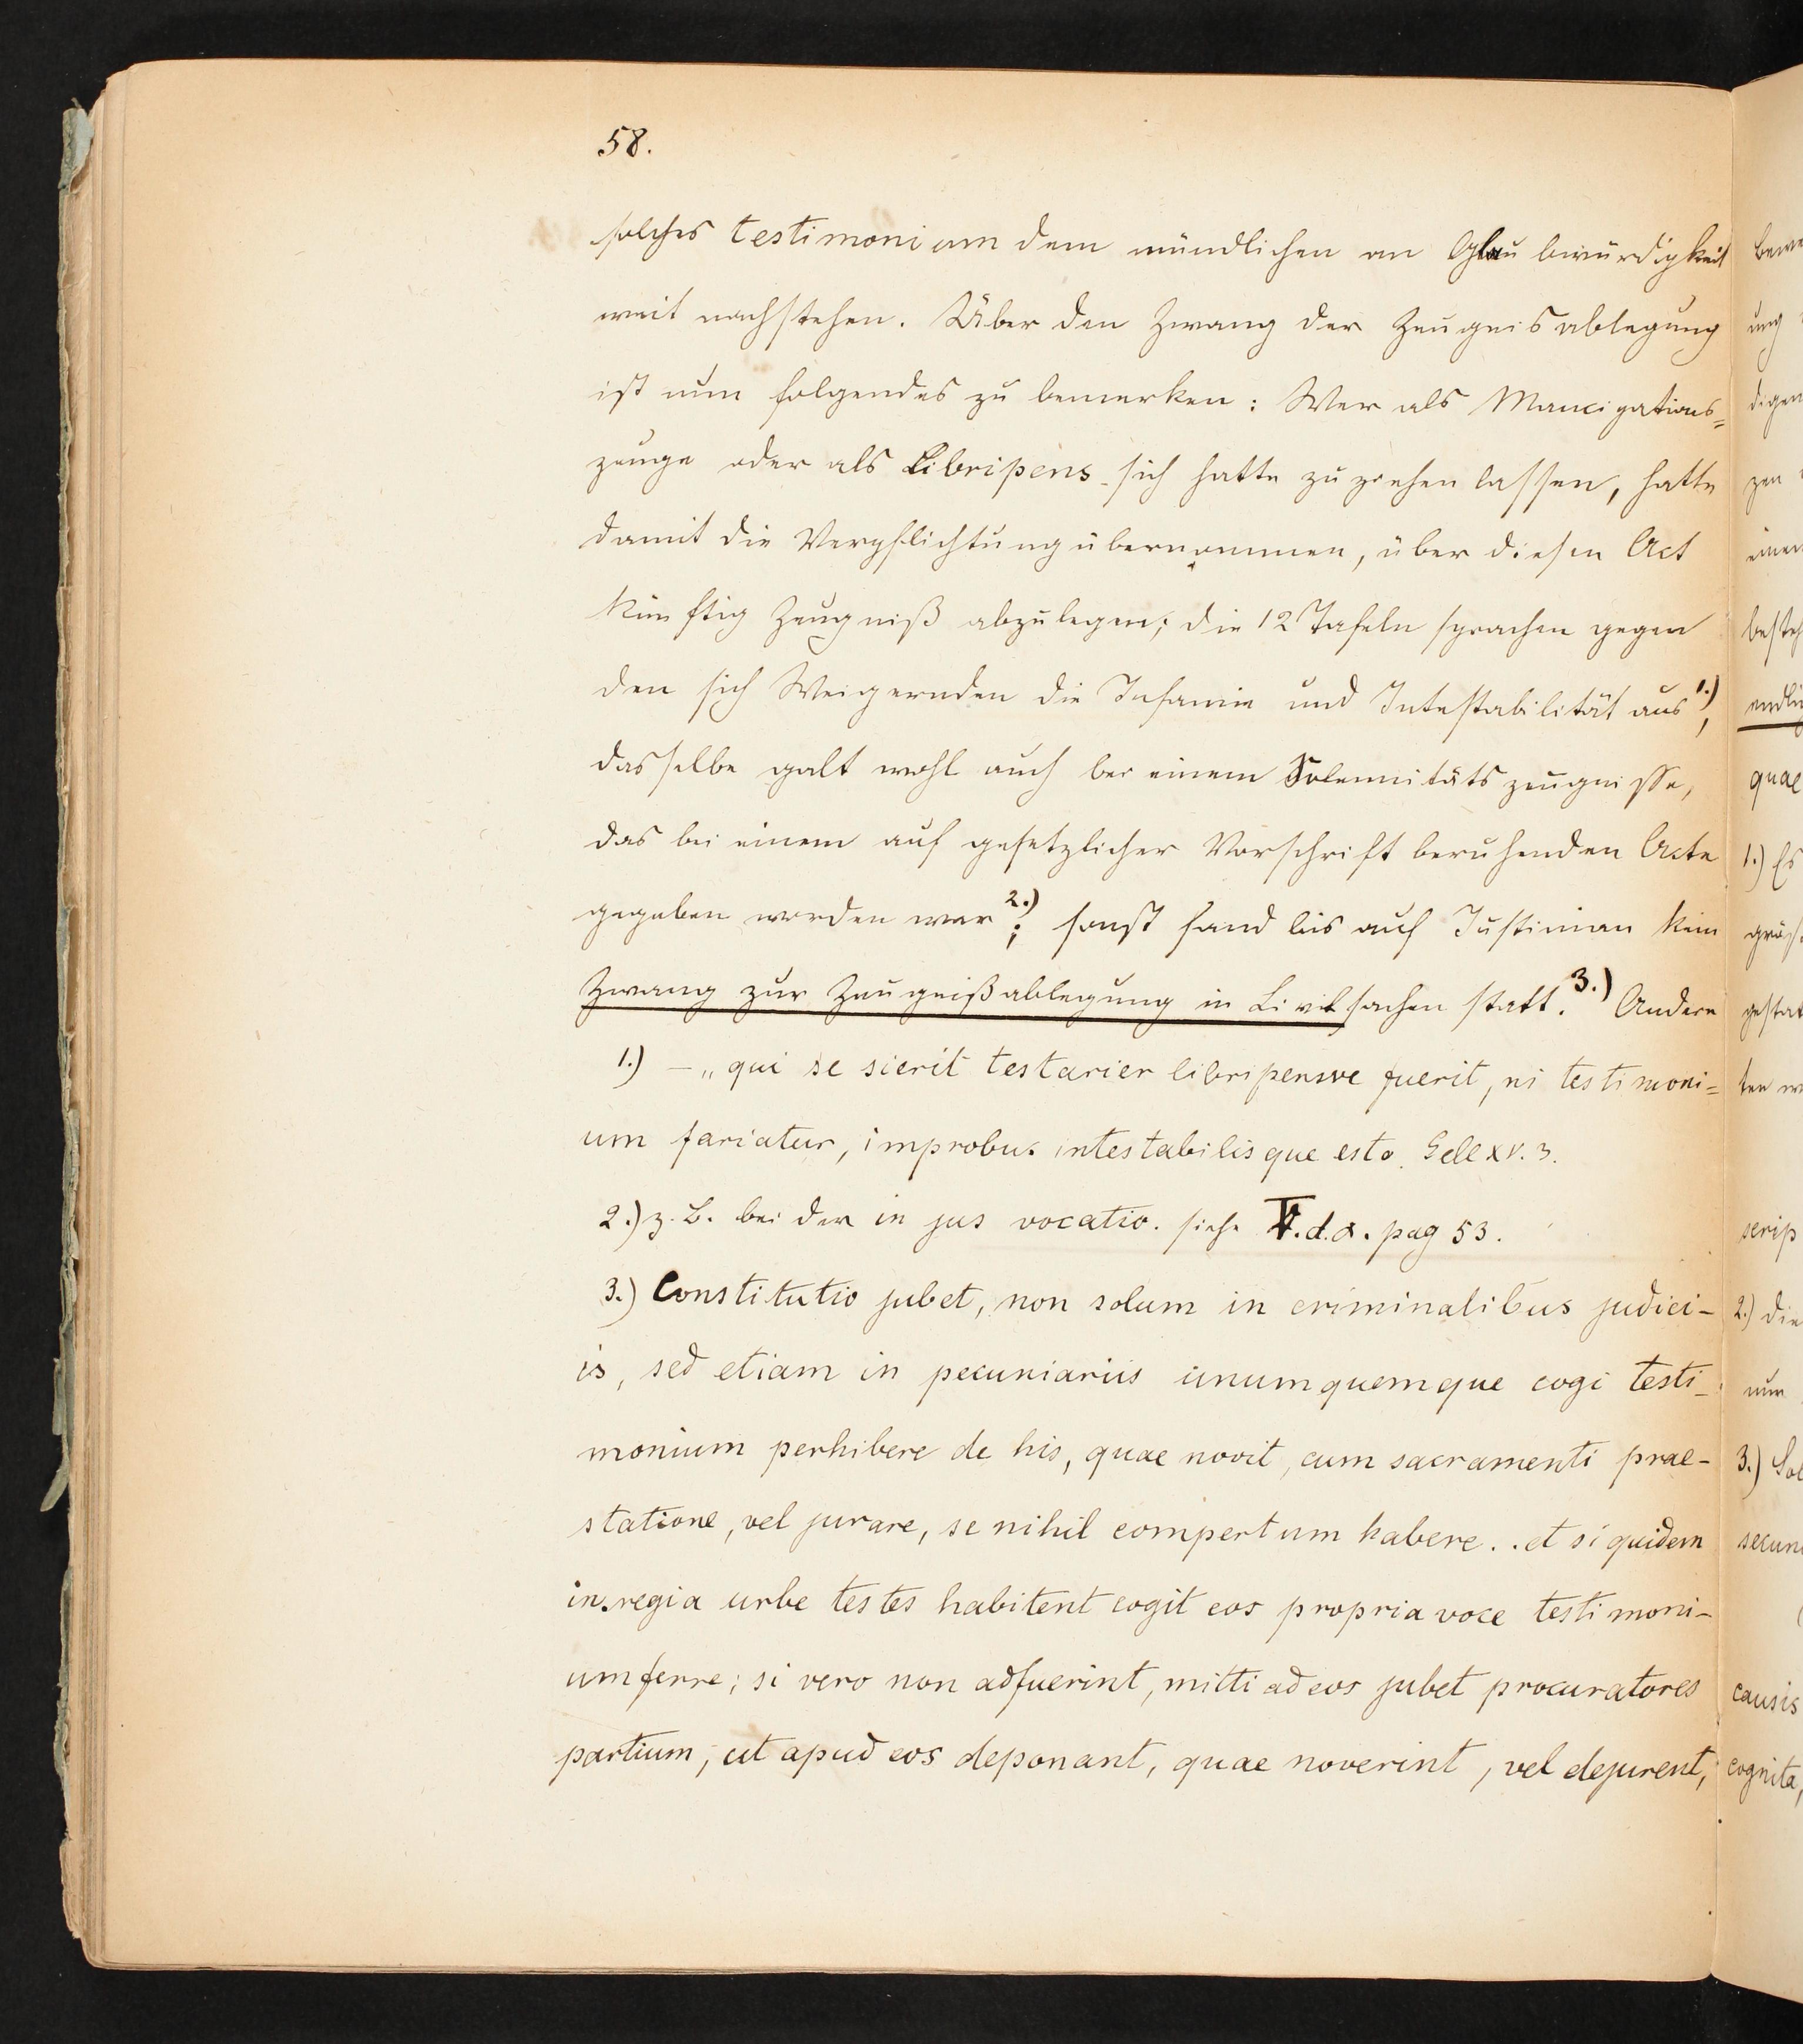 58.
solches testimonium dem mündlichen an Glaubwürdigkeit
weit nachstehen. Über den Zwang der Zeugnisablegung
ist nun folgendes zu bemerken: Wer als Mancipations=
zeuge oder als Libripens sich hatte zuziehen lassen, hatte
damit die Verpflichtung übernommen, über diesen Act
künftig Zeugniß abzulegen; die 12 Tafeln sprachen gegen
den sich Weigernden die Infamie und Intestabilität aus 1.),
dasselbe galt wohl auch bei einem Solemnitätszeugnisse,
das bei einem auf gesetzlicher Vorschrift beruhenden Acte
gegeben worden war 2.); sonst fand bis auf Justinian kein
Zwang zur Zeugnißablegung in Civilsachen statt. 3.) Andere
1.) – „qui se sierit testarier libripensve fuerit, ni testimoni=
um fariatur, improbus intestabilisque esto. Gell XV. 3.
2.) z. B. bei der in jus vocatio. siehe V. d. A. pag 53.
3.) Constitutio jubet, non solum in criminalibus judici-
is, sed etiam in pecuniariis unumquemque cogi testi-
monium perhibere de his, quae novit, cum sacramenti prae-
statione, vel jurare, se nihil compertum habere. . et si quidem
in regia urbe testes habitent cogit eos propria voce testimoni-
um ferre; si vero non adfuerint, mitti ad eos jubet procuratores
partium, ut apud eos deponant, quae noverint, vel dejurent,
ung
digen
zen
einen
quae
1.) Es
scrip
2.) die
nur
3.)
causis
cognita,